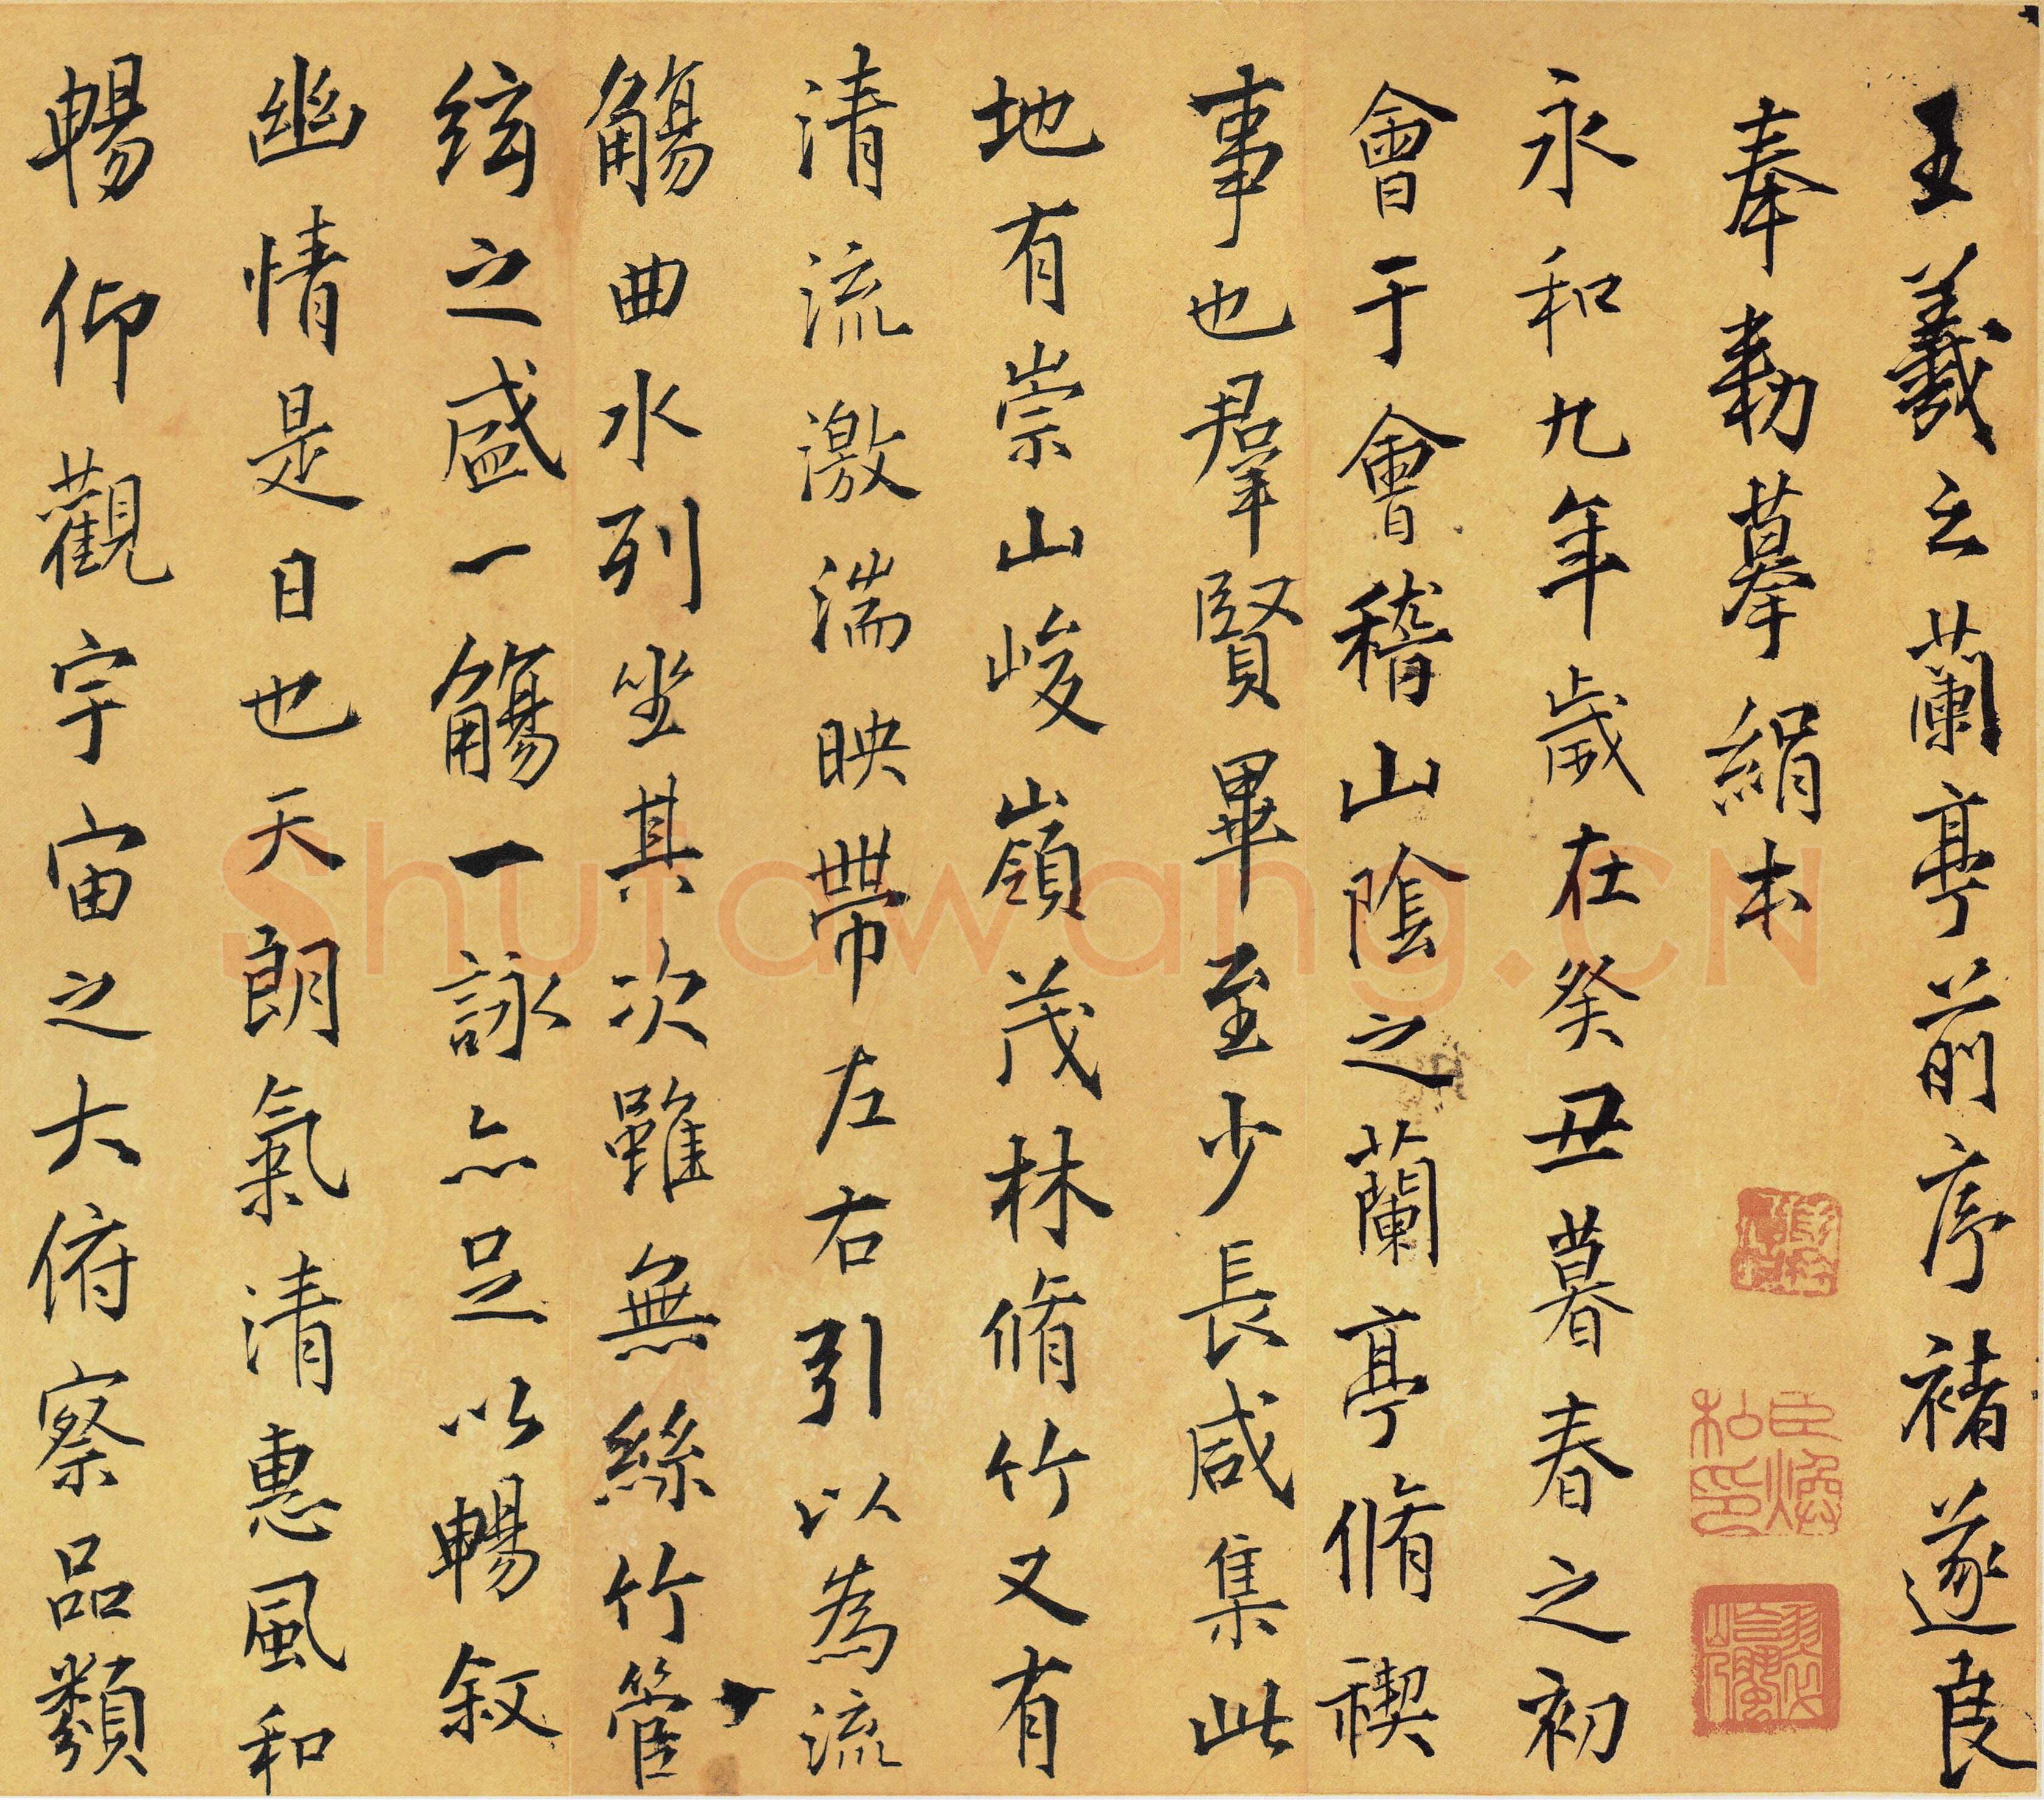 王羲之蘭亭前序褚遂良
奉勅摹絹本
永和九年歲在癸丑暮春之初
會于會稽山陰之蘭亭脩禊
事也羣賢畢至少長咸集此
地有崇山峻嶺茂林脩竹又有
清流激湍映帶左右引以為流
觴曲水列坐其次雖無絲竹管
絃之盛一觴一詠亦足以暢敘
幽情是日也天朗氣清惠風和
暢仰觀宇宙之大俯察品類
Shufawang.CN